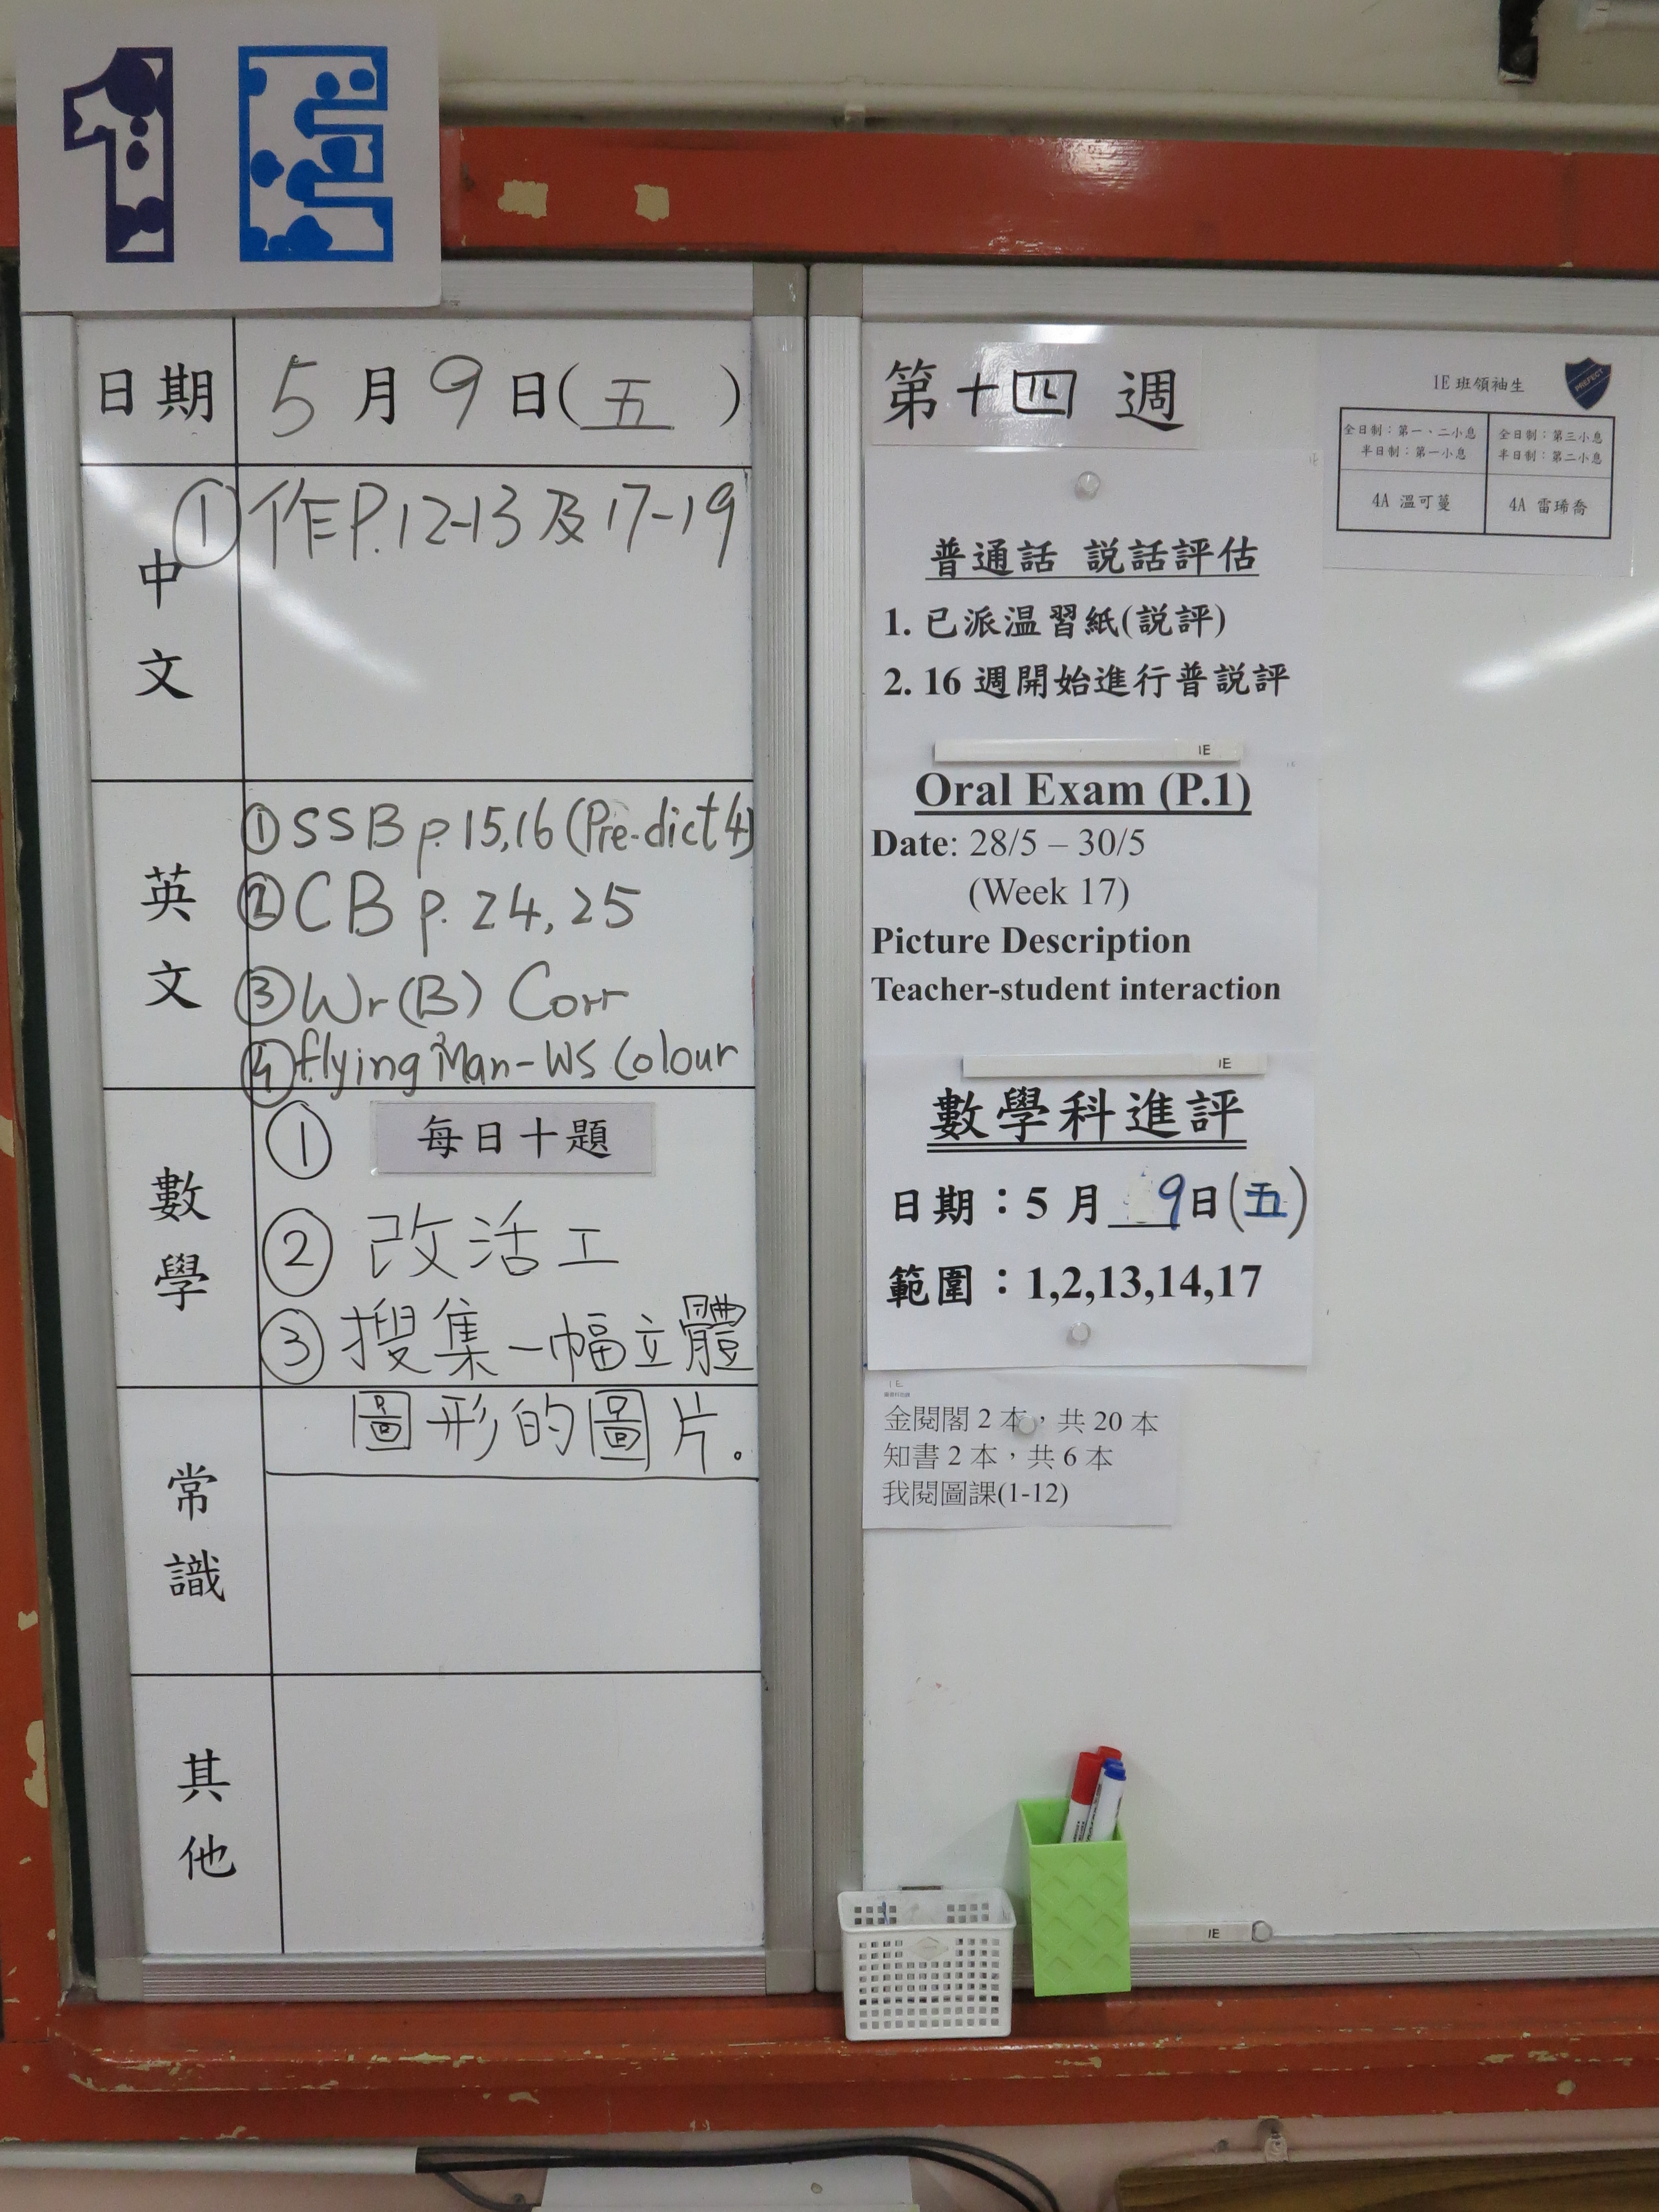 1E
日期 5月9日(五)
中文
① 作P.12-13及17-19
英文
① SSB p.15,16 (Pre-dict 4)
② CB p. 24, 25
③ Wr(B) Corr
④ flying Man-WS Colour
數學
① 每日十題
② 改活工
③ 搜集一幅立體
圖形的圖片。
常識
其他
第十四週
普通話 説話評估
1. 已派温習紙(説評)
2. 16 週開始進行普説評
IE
Oral Exam (P.1)
Date: 28/5 – 30/5
(Week 17)
Picture Description
Teacher-student interaction
IE
數學科進評
日期：5月 9日(五)
範圍：1,2,13,14,17
IE
金閱閣 2 本，共 20 本
知書 2 本，共 6 本
我閱圖課(1-12)
IE
1E 班領袖生
PREFECT
全日制：第一、二小息 全日制：第三小息
半日制：第一小息 半日制：第二小息
4A 溫可蔓 4A 雷琋喬